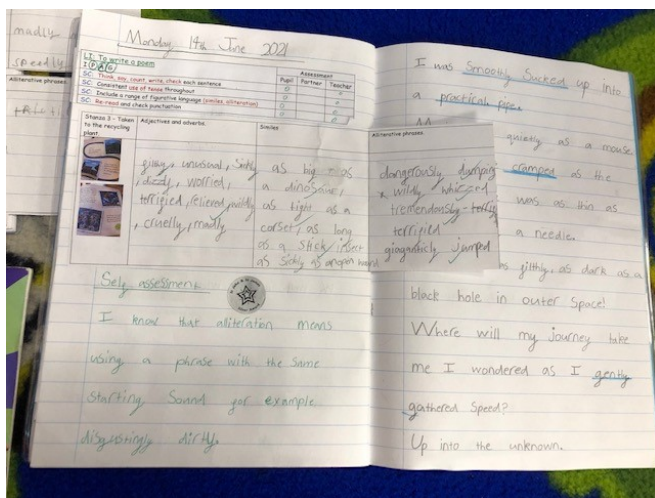 madly
speedily
Alliterative phrases
Monday 14th June 2021
LI: To write a poem
I P A G
SC: Think, say, count, write, check each sentence
SC: Consistent use of tense throughout
SC: Include a range of figurative language (similes, alliteration)
SC: Re-read and check punctuation
Assessment
Pupil Partner Teacher
Stanza 3 - Taken to the recycling plant.
Adjectives and adverbs.
unusual, Sickly
, dizzy, worried,
terrified, relieved, wildly
, cruelly, madly
Similes
as big as
a dinosaur,
as tight as a
corset, as long
as a stick insect
as sickly as an open wound
Alliterative phrases
dangerously dumping
wildly whizzed
tremendously
terrified
gigantically jumped
Self assessment
I know that alliteration means
using a phrase with the same
starting sound for example
disgustingly dirty.
I was Smoothly Sucked up into
a practical pipe.
quietly as a mouse
cramped as the
was as thin as
a needle.
as dark as a
black hole in outer space!
Where will my journey take
me I wondered as I gently
gathered Speed?
Up into the unknown.